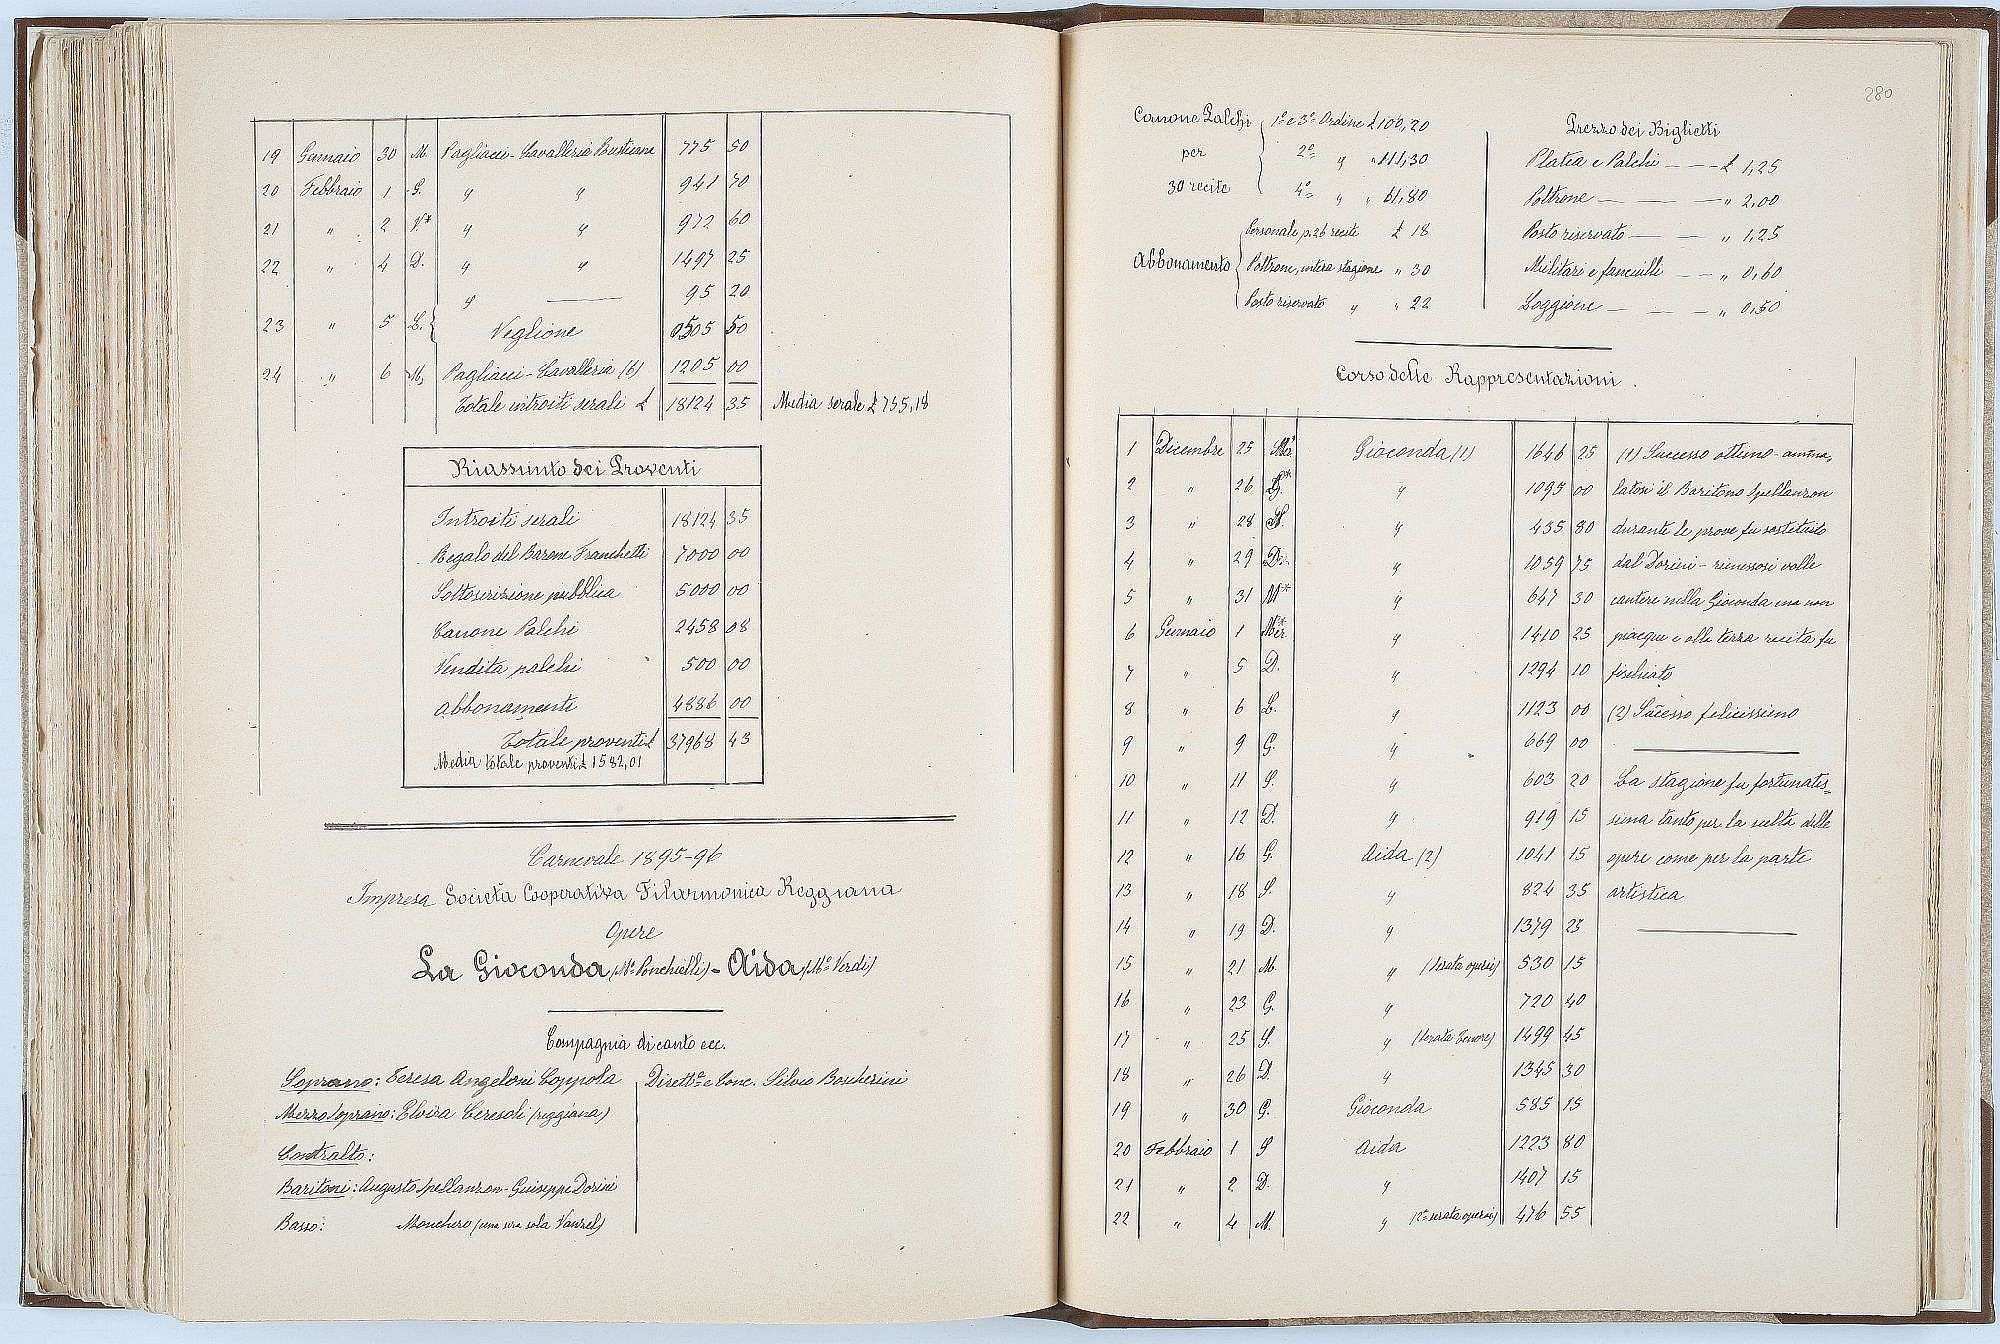 19 Gennaio 30 M. Pagliacci-Cavalleria Rusticana 775 50
20 Febbraio 1 G. " " 941 70
21 " 2 V* " " 972 60
22 " 4 D. " " 1497 25
" —— 95 20
23 " 5 L. Veglione 505 50
24 " 6 M. Pagliacci-Cavalleria (6) 1205 00
Totale introiti serali £ 18124 35 Media serale £ 755,18
Riassunto dei Proventi
Introiti serali 18124 35
Regalo del Barone Franchetti 7000 00
Sottoscrizione pubblica 5000 00
Canone Palchi 2458 08
Vendita palchi 500 00
Abbonamenti 4886 00
Totale proventi £ 37968 43
Media totale proventi £ 1582,01
Carnevale 1895-96
Impresa Società Cooperativa Filarmonica Reggiana
Opere
La Gioconda (Mo. Ponchielli) - Aida (Mo. Verdi)
Compagnia di canto ecc.
Soprano: Teresa Angeloni Coppola
Mezzo soprano: Elvira Ceresoli (reggiana)
Contralto:
Baritoni: Augusto Spellanzon - Giuseppe Dorini
Basso: Monchero (una sera sola Vanrel)
Dirett.e e Conc. Silvio Boscherini
280
Canone Palchi per 30 recite
1o e 3o Ordine £ 100,20
2o " " 111,30
4o " " 61,80
Abbonamento
Personale p. 26 recite £ 18
Poltrone, intera stagione " 30
Posto riservato " " 22
Prezzo dei Biglietti
Platea e Palchi — — £ 1,25
Poltrone — — — " 2,00
Posto riservato — — " 1,25
Militari e fanciulli — — " 0,60
Loggione — — — " 0,50
Corso delle Rappresentazioni.
1 Dicembre 25 Mer. Gioconda (1) 1646 25
2 " 26 G.* " 1095 00
3 " 28 S. " 435 80
4 " 29 D. " 1059 75
5 " 31 M* " 647 30
6 Gennaio 1 Mer.* " 1410 25
7 " 5 D. " 1294 10
8 " 6 L. " 1123 00
9 " 9 G. " 669 00
10 " 11 S. " 603 20
11 " 12 D. " 919 15
12 " 16 G. Aida (2) 1041 15
13 " 18 S. " 824 35
14 " 19 D. " 1379 25
15 " 21 M. " (Serata operai) 530 15
16 " 23 G. " 720 40
17 " 25 S. " (Serata Tenore) 1499 45
18 " 26 D. " 1345 30
19 " 30 G. Gioconda 585 15
20 Febbraio 1 S Aida 1223 80
21 " 2 D. " 1407 15
22 " 4 M. " (2a serata operai) 476 55
(1) Successo ottimo - amma-
latosi il Baritono Spellanzon
durante le prove fu sostituito
dal Dorini - rimessosi volle
cantare nella Gioconda ma non
piacque e alla terza recita fu
fischiato
(2) Sucesso felicissimo
La stagione fu fortunatis=
sima tanto per la scelta delle
opere come per la parte
artistica